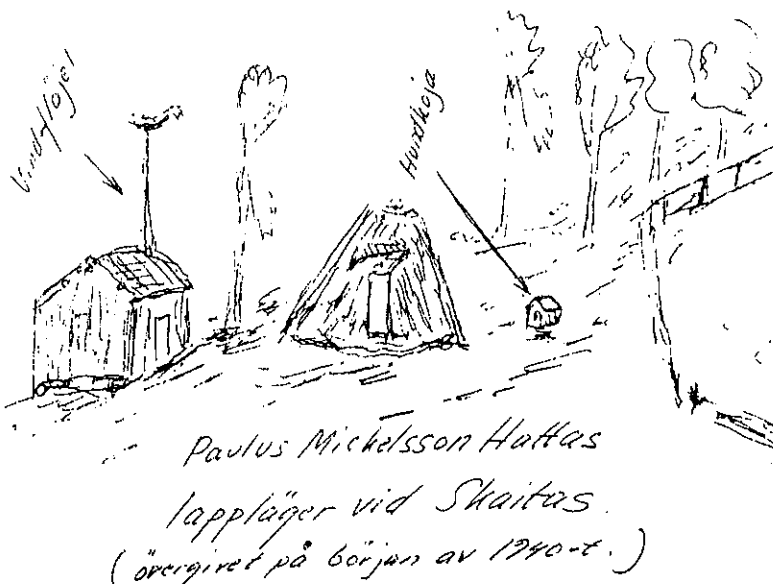 Vindflöjel
Hundkoja
Paulus Mickelsson Hattas
lappläger vid Skaitas.
(övergivet på början av 1940-t.)